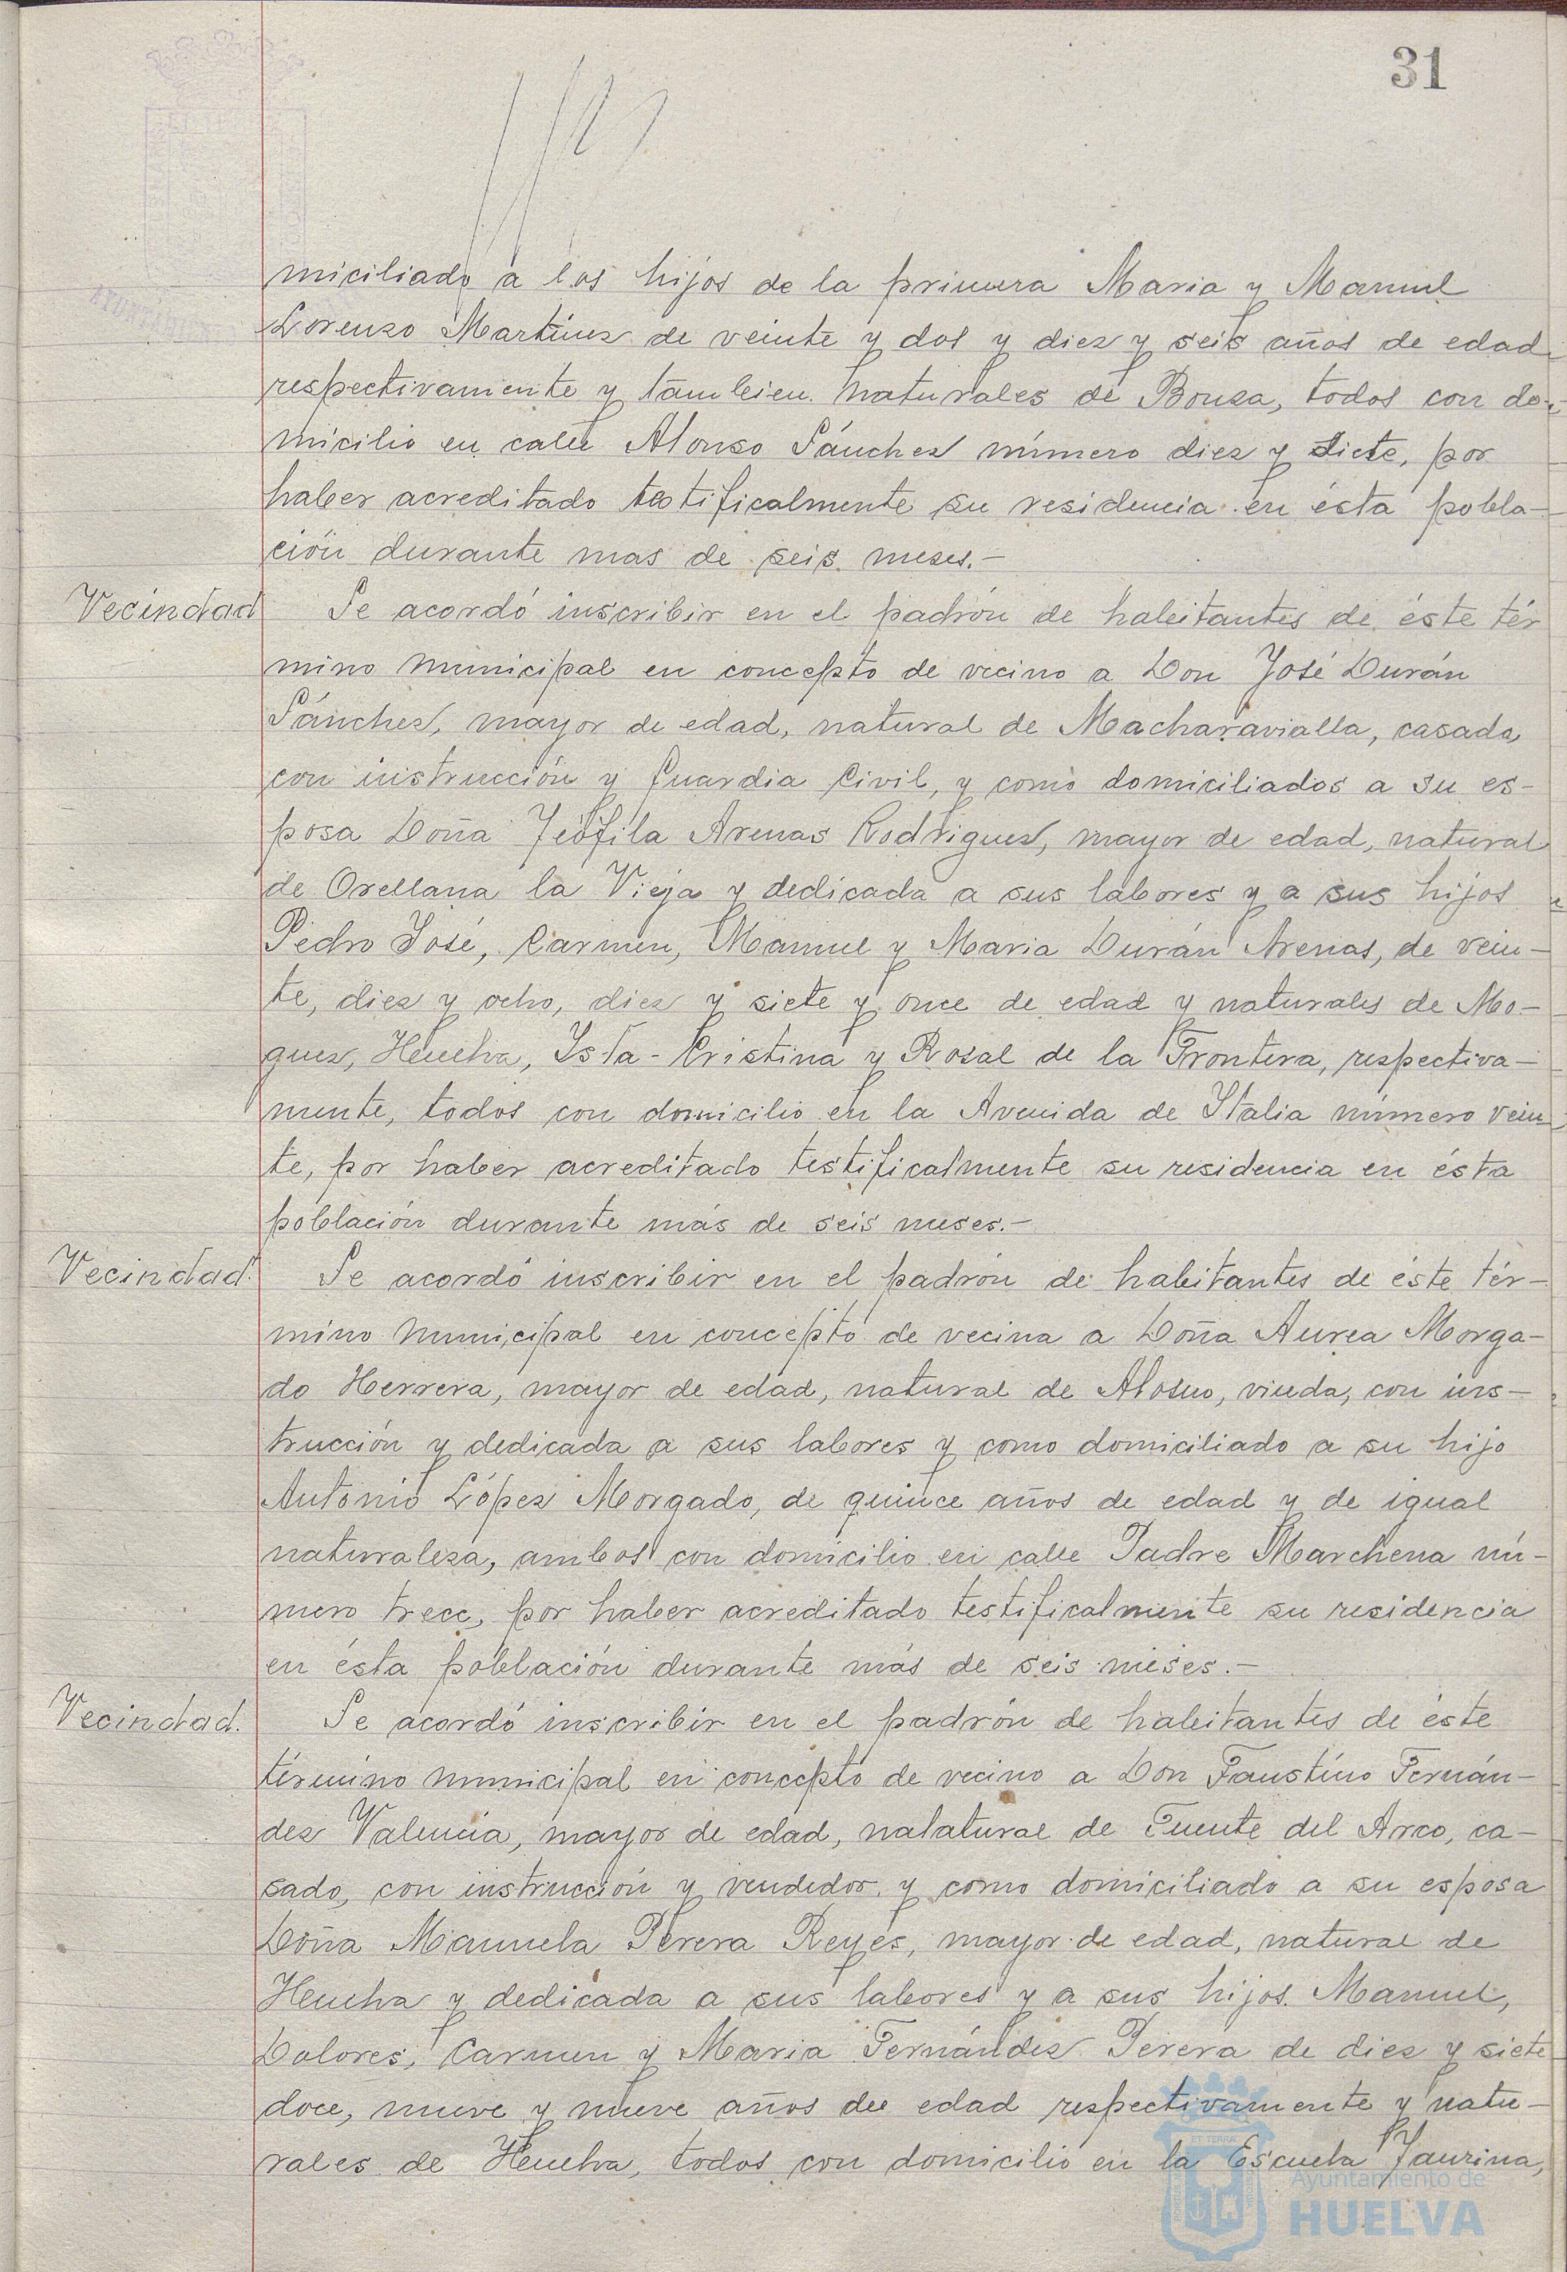 31
miciliado a los hijos de la primera Maria y Manuel
Lorenzo Martínez de veinte y dos y diez y seis años de edad
respectivamente y tambien naturales de Bonza, todos con do-
micilio en calle Alonso Sánchez número diez y siete, por
haber acreditado testificalmente su residencia en ésta pobla-
ción durante mas de seis meses.-
Vecindad Se acordó inscribir en el padrón de habitantes de éste tér
mino municipal en concepto de vecino a Don José Durán
Sánchez, mayor de edad, natural de Macharavialla, casado,
con instrucción y Guardia Civil, y como domiciliados a su es-
posa Doña Teófila Arenas Rodriguez, mayor de edad, natural
de Orellana la Vieja y dedicada a sus labores y a sus hijos
Pedro José, Carmen, Manuel y Maria Durán Arenas, de vein-
te, diez y ocho, diez y siete y once de edad y naturales de Mo-
guer, Huelva, Ysla-Cristina y Rosal de la Frontera, respectiva-
mente, todos con domicilio en la Avenida de Ytalia número vein
te, por haber acreditado testificalmente su residencia en ésta
población durante más de seis meses.-
Vecindad. Se acordó inscribir en el padrón de habitantes de éste tér-
mino municipal en concepto de vecina a Doña Aurea Morga-
do Herrera, mayor de edad, natural de Alosno, viuda, con ins-
trucción y dedicada a sus labores y como domiciliado a su hijo
Antonio López Morgado, de quince años de edad y de igual
naturaleza, ambos con domicilio en calle Padre Marchena nú-
mero trece, por haber acreditado testificalmente su residencia
en ésta población durante más de seis meses.-
Vecindad. Se acordó inscribir en el padrón de habitantes de éste
término municipal en concepto de vecino a Don Faustino Fernán-
dez Valencia, mayor de edad, natatural de Fuente del Arco, ca-
sado, con instrucción y vendedor y como domiciliado a su esposa
Doña Manuela Perera Reyes, mayor de edad, natural de
Huelva y dedicada a sus labores y a sus hijos Manuel,
Dolores, Carmen y Maria Fernández Perera de diez y siete
doce, nueve y nueve años de edad respectivamente y natu-
rales de Huelva, todos con domicilio en la Escuela Taurina,
Ayuntamiento de
HUELVA